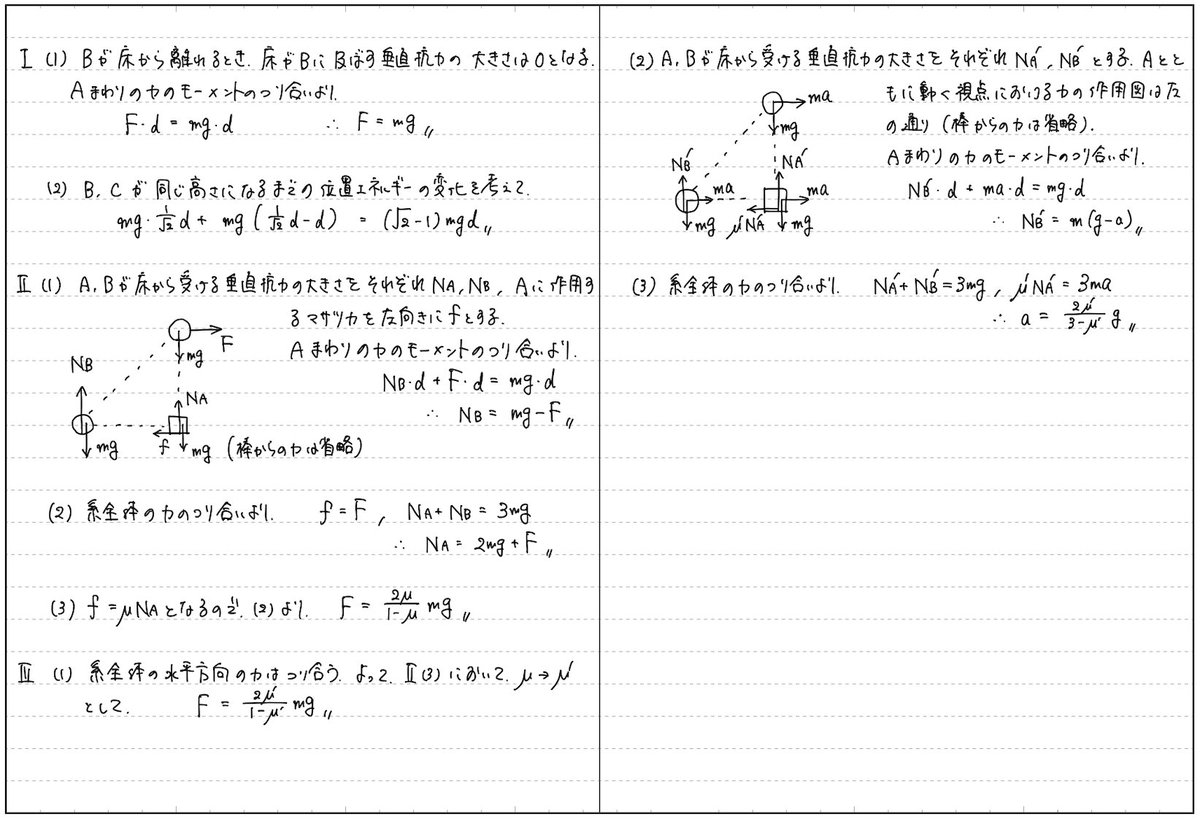 I (1) Bが床から離れるとき、床がBに及ぼす垂直抗力の大きさは0となる.
Aまわりの力のモーメントのつり合いより.
F・d = mg・d ∴ F = mg〃
(2) B, Cが同じ高さになるまでの位置エネルギーの変化を考えて.
mg・1/√2 d + mg(1/√2 d-d) = (√2-1)mgd〃
II (1) A, Bが床から受ける垂直抗力の大きさをそれぞれNA, NB, Aに作用す
るマサツ力を左向きにfとする.
Aまわりの力のモーメントのつり合いより.
NB・d + F・d = mg・d
∴ NB = mg-F〃
F
mg
NB
NA
mg
f
mg
(棒からの力は省略)
(2) 系全体の力のつり合いより. f = F, NA+NB = 3mg
∴ NA = 2mg+F〃
(3) f = μNAとなるので. (2)より. F = 2μ/1-μ mg〃
III (1) 系全体の水平方向の力はつり合う. よって. II(3)において. μ→μ′
として. F = 2μ′/1-μ′ mg〃
(2) A, Bが床から受ける垂直抗力の大きさをそれぞれNA′, NB′とする. Aとと
もに動く視点における力の作用図は左
の通り(棒からの力は省略).
Aまわりの力のモーメントのつり合いより.
NB′・d + ma・d = mg・d
∴ NB′ = m(g-a)〃
ma
mg
NB′
NA′
ma
ma
mg
μ′NA′
mg
(3) 系全体の力のつり合いより. NA′+NB′=3mg, μ′NA′=3ma
∴ a = 2μ′/3-μ′ g〃